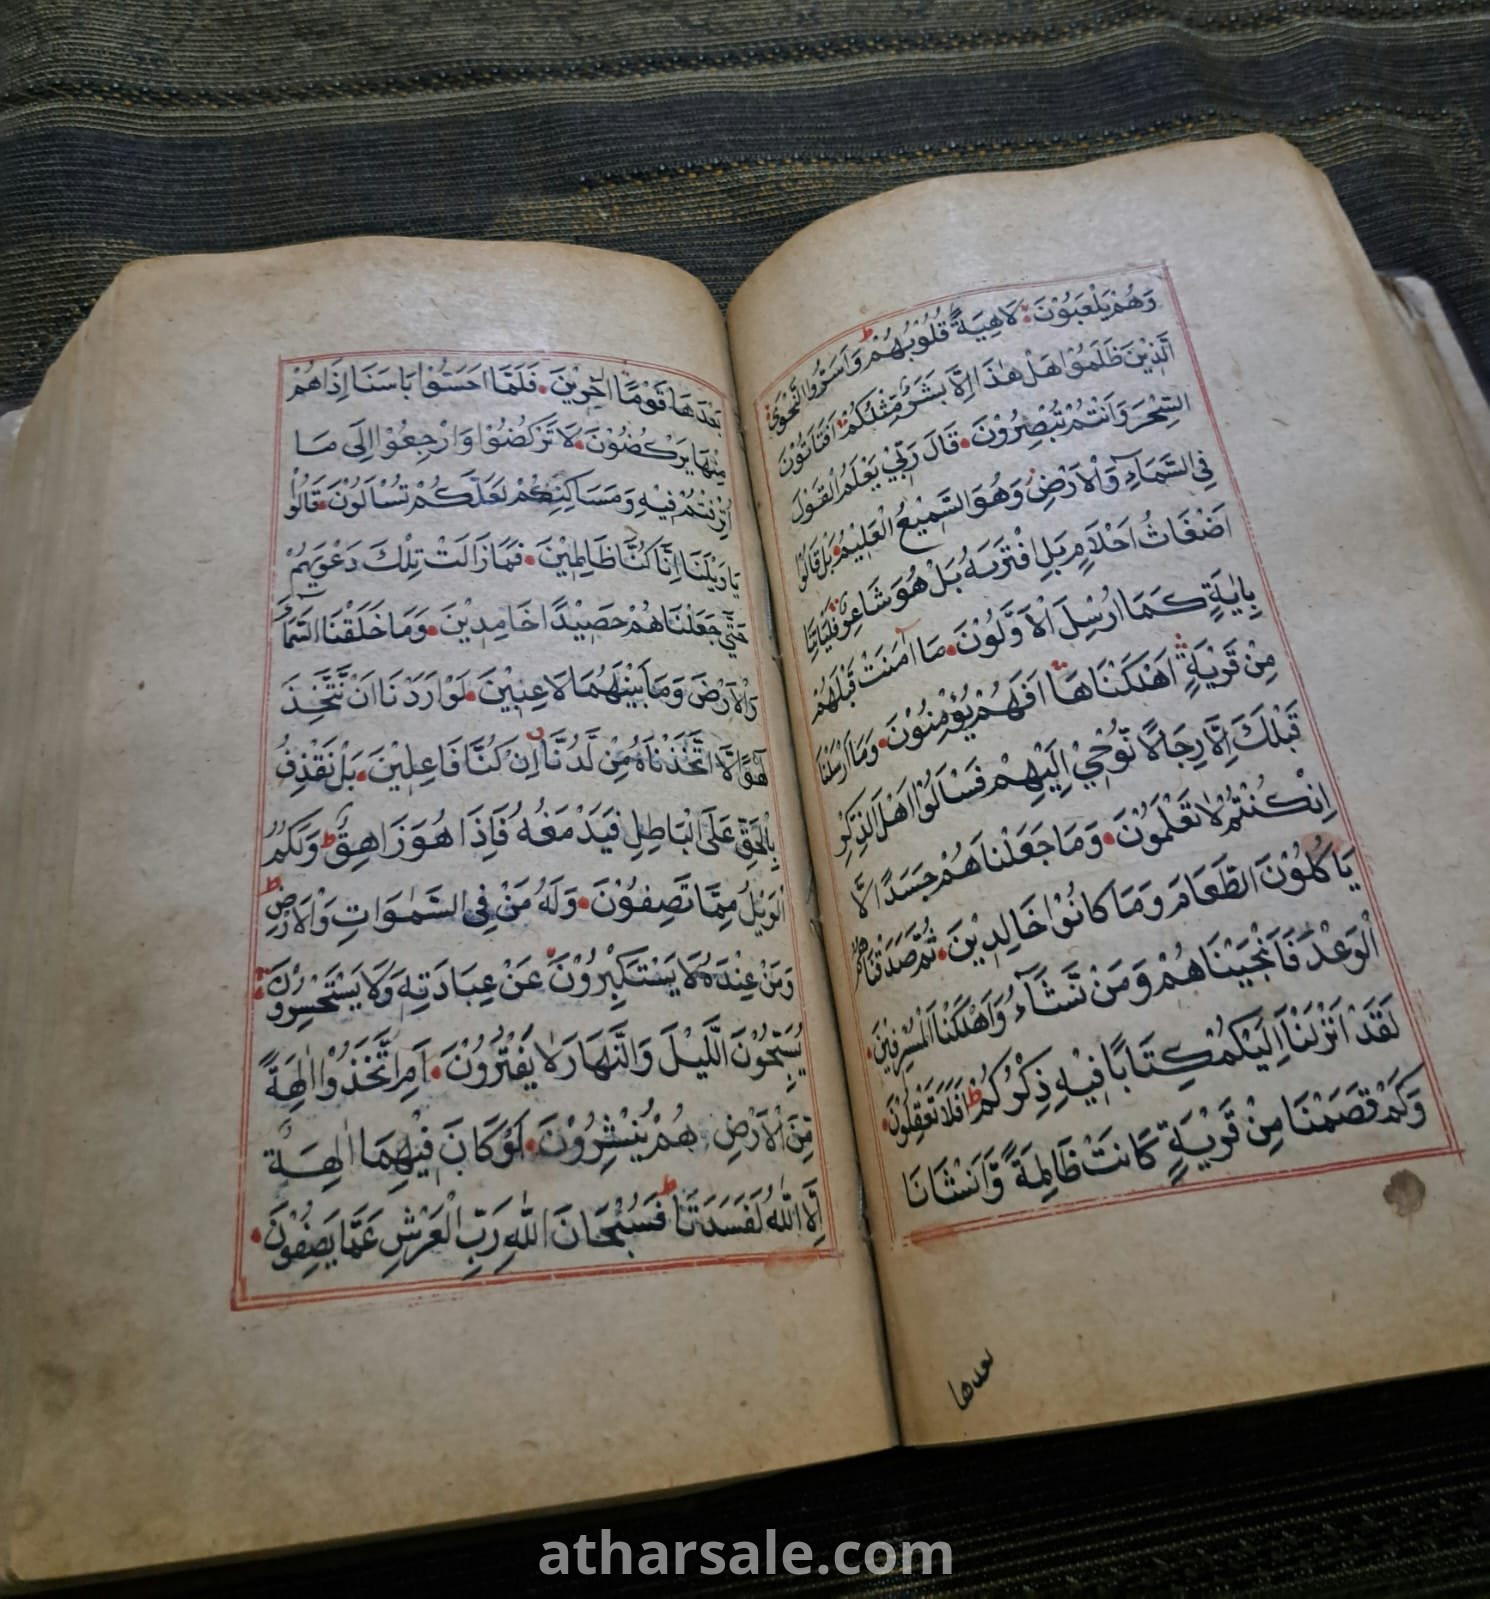 وَهُمْ يَلْعَبُوْنَ لَاهِيَةً قُلُوْبُهُمْ ط وَاَسَرُّوا النَّجْوَى
الَّذِيْنَ ظَلَمُوْا هَلْ هٰذَا اِلَّا بَشَرٌ مِثْلُكُمْ اَفَتَاْتُوْنَ
السِّحْرَ وَاَنْتُمْ تُبْصِرُوْنَ قَالَ رَبِّيْ يَعْلَمُ الْقَوْلَ
فِي السَّمَاۤءِ وَالْاَرْضِ وَهُوَ السَّمِيْعُ الْعَلِيْمُ بَلْ قَالُوْا
اَضْغَاثُ اَحْلَامٍ بَلِ افْتَرٰىهُ بَلْ هُوَ شَاعِرٌ فَلْيَاْتِنَا
بِاٰيَةٍ كَمَا اُرْسِلَ الْاَوَّلُوْنَ مَا اٰمَنَتْ قَبْلَهُمْ
مِنْ قَرْيَةٍ اَهْلَكْنَاهَا اَفَهُمْ يُؤْمِنُوْنَ وَمَا اَرْسَلْنَا
قَبْلَكَ اِلَّا رِجَالًا نُوْحِيْ اِلَيْهِمْ فَسْاَلُوْا اَهْلَ الذِّكْرِ
اِنْ كُنْتُمْ لَا تَعْلَمُوْنَ وَمَا جَعَلْنَاهُمْ جَسَدًا لَّا
يَاْكُلُوْنَ الطَّعَامَ وَمَا كَانُوْا خَالِدِيْنَ ثُمَّ صَدَقْنَاهُمُ
الْوَعْدَ فَاَنْجَيْنَاهُمْ وَمَنْ نَّشَاۤءُ وَاَهْلَكْنَا الْمُسْرِفِيْنَ
لَقَدْ اَنْزَلْنَا اِلَيْكُمْ كِتَابًا فِيْهِ ذِكْرُكُمْ ط اَفَلَا تَعْقِلُوْنَ
وَكَمْ قَصَمْنَا مِنْ قَرْيَةٍ كَانَتْ ظَالِمَةً وَّاَنْشَاْنَا
بعدها
بَعْدَهَا قَوْمًا اٰخَرِيْنَ فَلَمَّا اَحَسُّوْا بَاْسَنَا اِذَا هُمْ
مِنْهَا يَرْكُضُوْنَ لَا تَرْكُضُوْا وَارْجِعُوْا اِلٰى مَا
اُتْرِفْتُمْ فِيْهِ وَمَسَاكِنِكُمْ لَعَلَّكُمْ تُسْاَلُوْنَ قَالُوْا
يَا وَيْلَنَا اِنَّا كُنَّا ظَالِمِيْنَ فَمَا زَالَتْ تِلْكَ دَعْوٰيهُمْ
حَتّٰى جَعَلْنَاهُمْ حَصِيْدًا خَامِدِيْنَ وَمَا خَلَقْنَا السَّمَاۤءَ
وَالْاَرْضَ وَمَا بَيْنَهُمَا لَاعِبِيْنَ لَوْ اَرَدْنَا اَنْ نَّتَّخِذَ
لَهْوًا لَّا اتَّخَذْنَاهُ مِنْ لَّدُنَّا اِنْ كُنَّا فَاعِلِيْنَ بَلْ نَقْذِفُ
بِالْحَقِّ عَلَى الْبَاطِلِ فَيَدْمَغُهُ فَاِذَا هُوَ زَاهِقٌ ط وَلَكُمُ
الْوَيْلُ مِمَّا تَصِفُوْنَ وَلَهُ مَنْ فِي السَّمٰوَاتِ وَالْاَرْضِ ط
وَمَنْ عِنْدَهُ لَا يَسْتَكْبِرُوْنَ عَنْ عِبَادَتِهِ وَلَا يَسْتَحْسِرُوْنَ
يُسَبِّحُوْنَ اللَّيْلَ وَالنَّهَارَ لَا يَفْتُرُوْنَ اَمِ اتَّخَذُوْا اٰلِهَةً
مِّنَ الْاَرْضِ هُمْ يُنْشِرُوْنَ لَوْ كَانَ فِيْهِمَا اٰلِهَةٌ
اِلَّا اللّٰهُ لَفَسَدَتَا ط فَسُبْحَانَ اللّٰهِ رَبِّ الْعَرْشِ عَمَّا يَصِفُوْنَ
atharsale.com